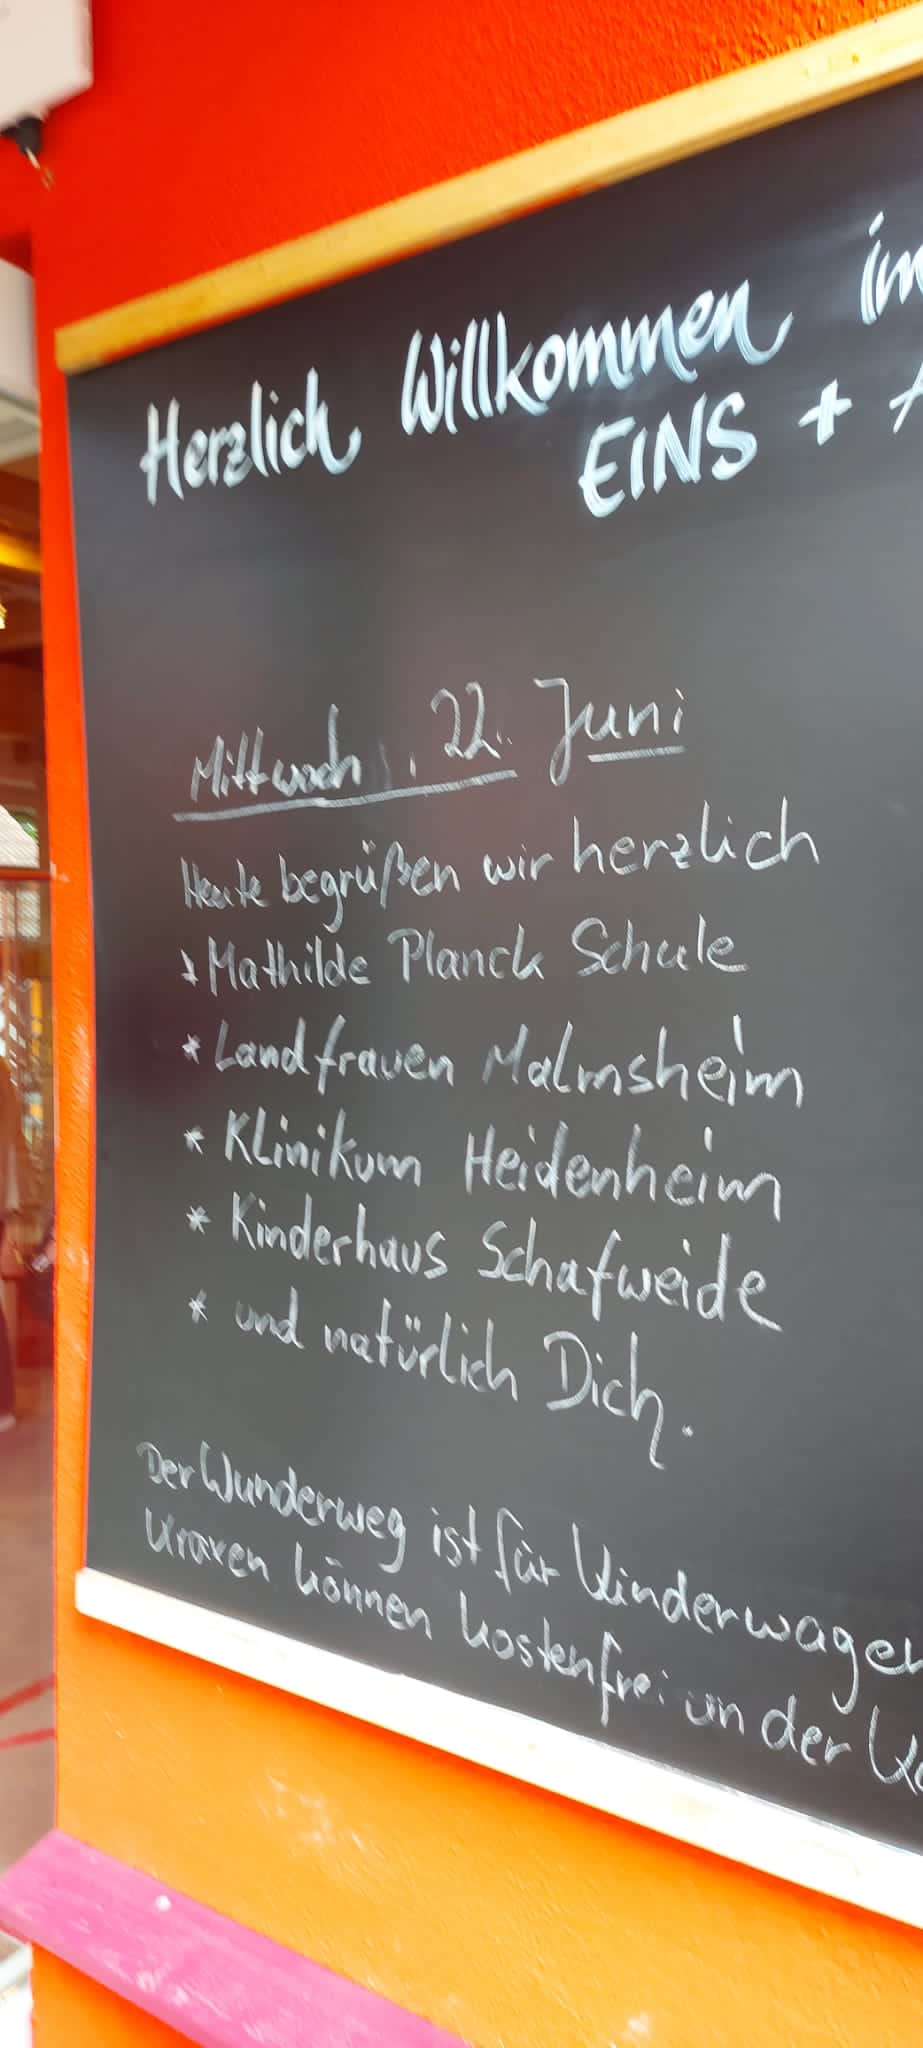 Herzlich Willkommen im
EINS + A
Mittwoch, 22. Juni
Heute begrüßen wir herzlich
* Mathilde Planck Schule
* Landfrauen Malmsheim
* Klinikum Heidenheim
* Kinderhaus Schafweide
* und natürlich Dich.
Der Wunderweg ist für Kinderwagen
Kraxen können kostenfrei an der